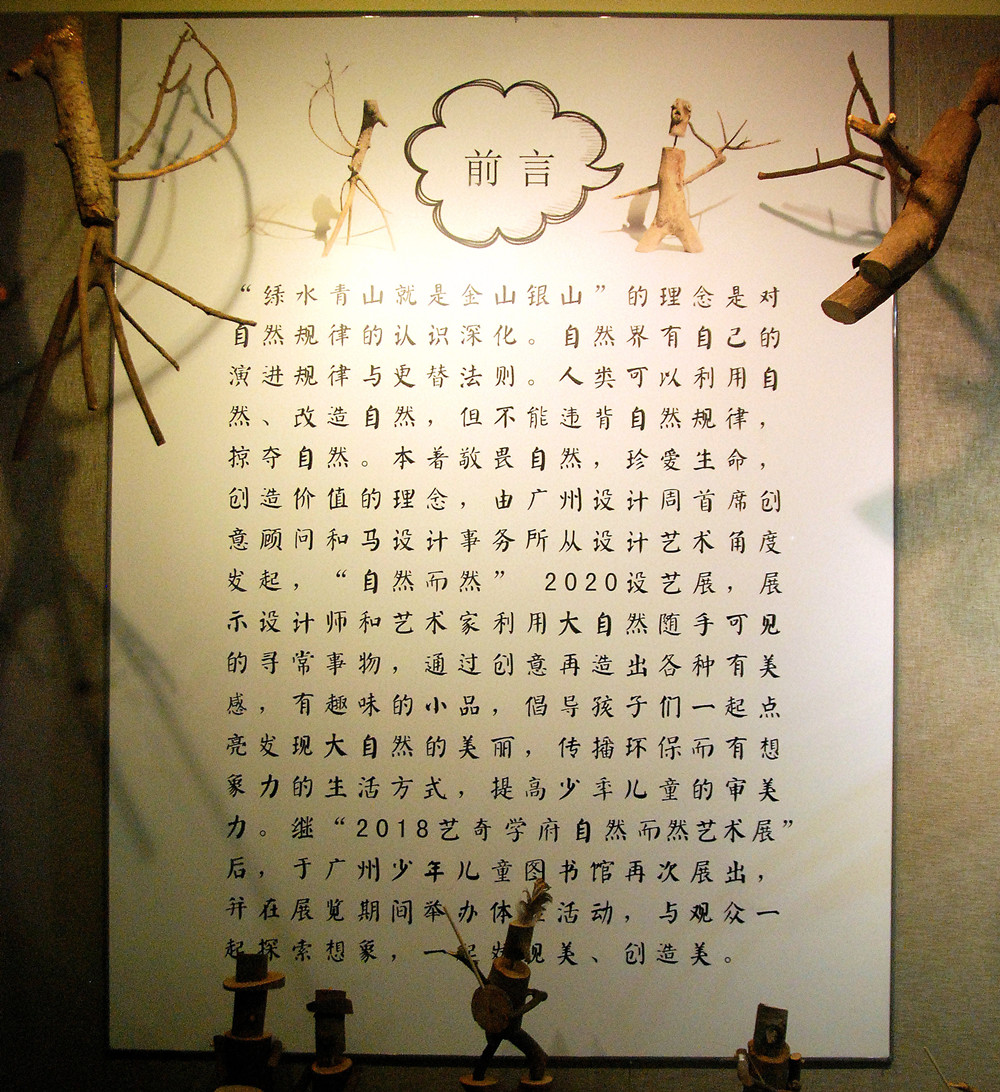 前言
“绿水青山就是金山银山”的理念是对
自然规律的认识深化。自然界有自己的
演进规律与更替法则。人类可以利用自
然、改造自然，但不能违背自然规律，
掠夺自然。本着敬畏自然，珍爱生命，
创造价值的理念，由广州设计周首席创
意顾问和马设计事务所从设计艺术角度
发起，“自然而然” 2020设艺展，展
示设计师和艺术家利用大自然随手可见
的寻常事物，通过创意再造出各种有美
感，有趣味的小品，倡导孩子们一起点
亮发现大自然的美丽，传播环保而有想
象力的生活方式，提高少年儿童的审美
力。继“2018艺奇学府自然而然艺术展”
后，于广州少年儿童图书馆再次展出，
并在展览期间举办体活动，与观众一
起探索想象，一起发现美、创造美。